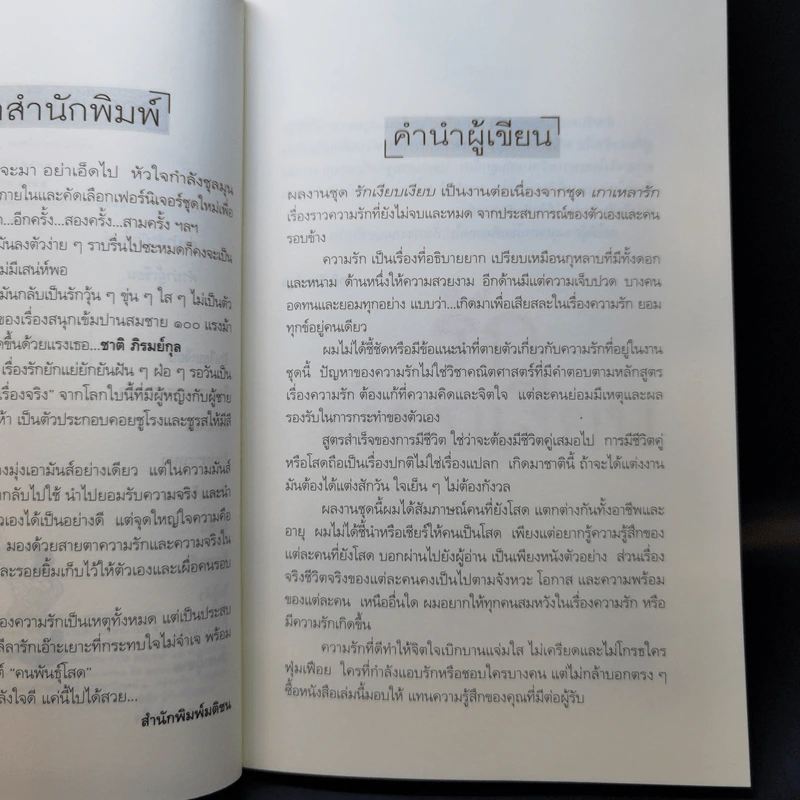 สำนักพิมพ์
จะมา อย่าเอ็ดไป หัวใจกำลังซุลมุน
ภายในและคัดเลือกเฟอร์นิเจอร์ชุดใหม่เพื่อ
...อีกครั้ง...สองครั้ง...สามครั้ง ฯลฯ
มันลงตัวง่าย ๆ ราบรื่นไปซะหมดก็คงจะเป็น
ไม่มีเสน่ห์พอ
มันกลับเป็นรักวุ้น ๆ ขุ่น ๆ ใส ๆ ไม่เป็นตัว
ของเรื่องสนุกเข้มปานสมชาย ๑๐๐ แรงม้า
ขึ้นด้วยแรงเธอ...ชาติ ภิรมย์กุล
เรื่องรักยักแย่ยักยันฝัน ๆ ฝอ ๆ รอวันเป็น
เรื่องจริง” จากโลกใบนี้ที่มีผู้หญิงกับผู้ชาย
เป็นตัวประกอบคอยชูโรงและชูรสให้มีสี
มุ่งเอามันส์อย่างเดียว แต่ในความมันส์
กลับไปใช้ นำไปยอมรับความจริง และนำ
เองได้เป็นอย่างดี แต่จุดใหญ่ใจความคือ
มองด้วยสายตาความรักและความจริงใน
และรอยยิ้มเก็บไว้ให้ตัวเองและเผื่อคนรอบ
องความรักเป็นเหตุทั้งหมด แต่เป็นประสบ
ลีลารักเอ๊าะเยาะที่กระทบใจไม่จำเจ พร้อม
“คนพันธุ์โสด”
ลังใจดี แค่นี้ไปได้สวย...
สำนักพิมพ์มติชน
คำนำผู้เขียน
ผลงานชุด รักเงียบเงียบ เป็นงานต่อเนื่องจากชุด เกาเหลารัก
เรื่องราวความรักที่ยังไม่จบและหมด จากประสบการณ์ของตัวเองและคน
รอบข้าง
ความรัก เป็นเรื่องที่อธิบายยาก เปรียบเหมือนกุหลาบที่มีทั้งดอก
และหนาม ด้านหนึ่งให้ความสวยงาม อีกด้านมีแต่ความเจ็บปวด บางคน
อดทนและยอมทุกอย่าง แบบว่า...เกิดมาเพื่อเสียสละในเรื่องความรัก ยอม
ทุกข์อยู่คนเดียว
ผมไม่ได้ชี้ชัดหรือมีข้อแนะนำที่ตายตัวเกี่ยวกับความรักที่อยู่ในงาน
ชุดนี้ ปัญหาของความรักไม่ใช่วิชาคณิตศาสตร์ที่มีคำตอบตามหลักสูตร
เรื่องความรัก ต้องแก้ที่ความคิดและจิตใจ แต่ละคนย่อมมีเหตุและผล
รองรับในการกระทำของตัวเอง
สูตรสำเร็จของการมีชีวิต ใช่ว่าจะต้องมีชีวิตคู่เสมอไป การมีชีวิตคู่
หรือโสดถือเป็นเรื่องปกติไม่ใช่เรื่องแปลก เกิดมาชาตินี้ ถ้าจะได้แต่งงาน
มันต้องได้แต่งสักวัน ใจเย็น ๆ ไม่ต้องกังวล
ผลงานชุดนี้ผมได้สัมภาษณ์คนที่ยังโสด แตกต่างกันทั้งอาชีพและ
อายุ ผมไม่ได้ชี้นำหรือเชียร์ให้คนเป็นโสด เพียงแต่อยากรู้ความรู้สึกของ
แต่ละคนที่ยังโสด บอกผ่านไปยังผู้อ่าน เป็นเพียงหนังตัวอย่าง ส่วนเรื่อง
จริงชีวิตจริงของแต่ละคนคงเป็นไปตามจังหวะ โอกาส และความพร้อม
ของแต่ละคน เหนืออื่นใด ผมอยากให้ทุกคนสมหวังในเรื่องความรัก หรือ
มีความรักเกิดขึ้น
ความรักที่ดีทำให้จิตใจเบิกบานแจ่มใส ไม่เครียดและไม่โกรธใคร
ฟุ่มเฟือย ใครที่กำลังแอบรักหรือชอบใครบางคน แต่ไม่กล้าบอกตรง ๆ
ซื้อหนังสือเล่มนี้มอบให้ แทนความรู้สึกของคุณที่มีต่อผู้รับ